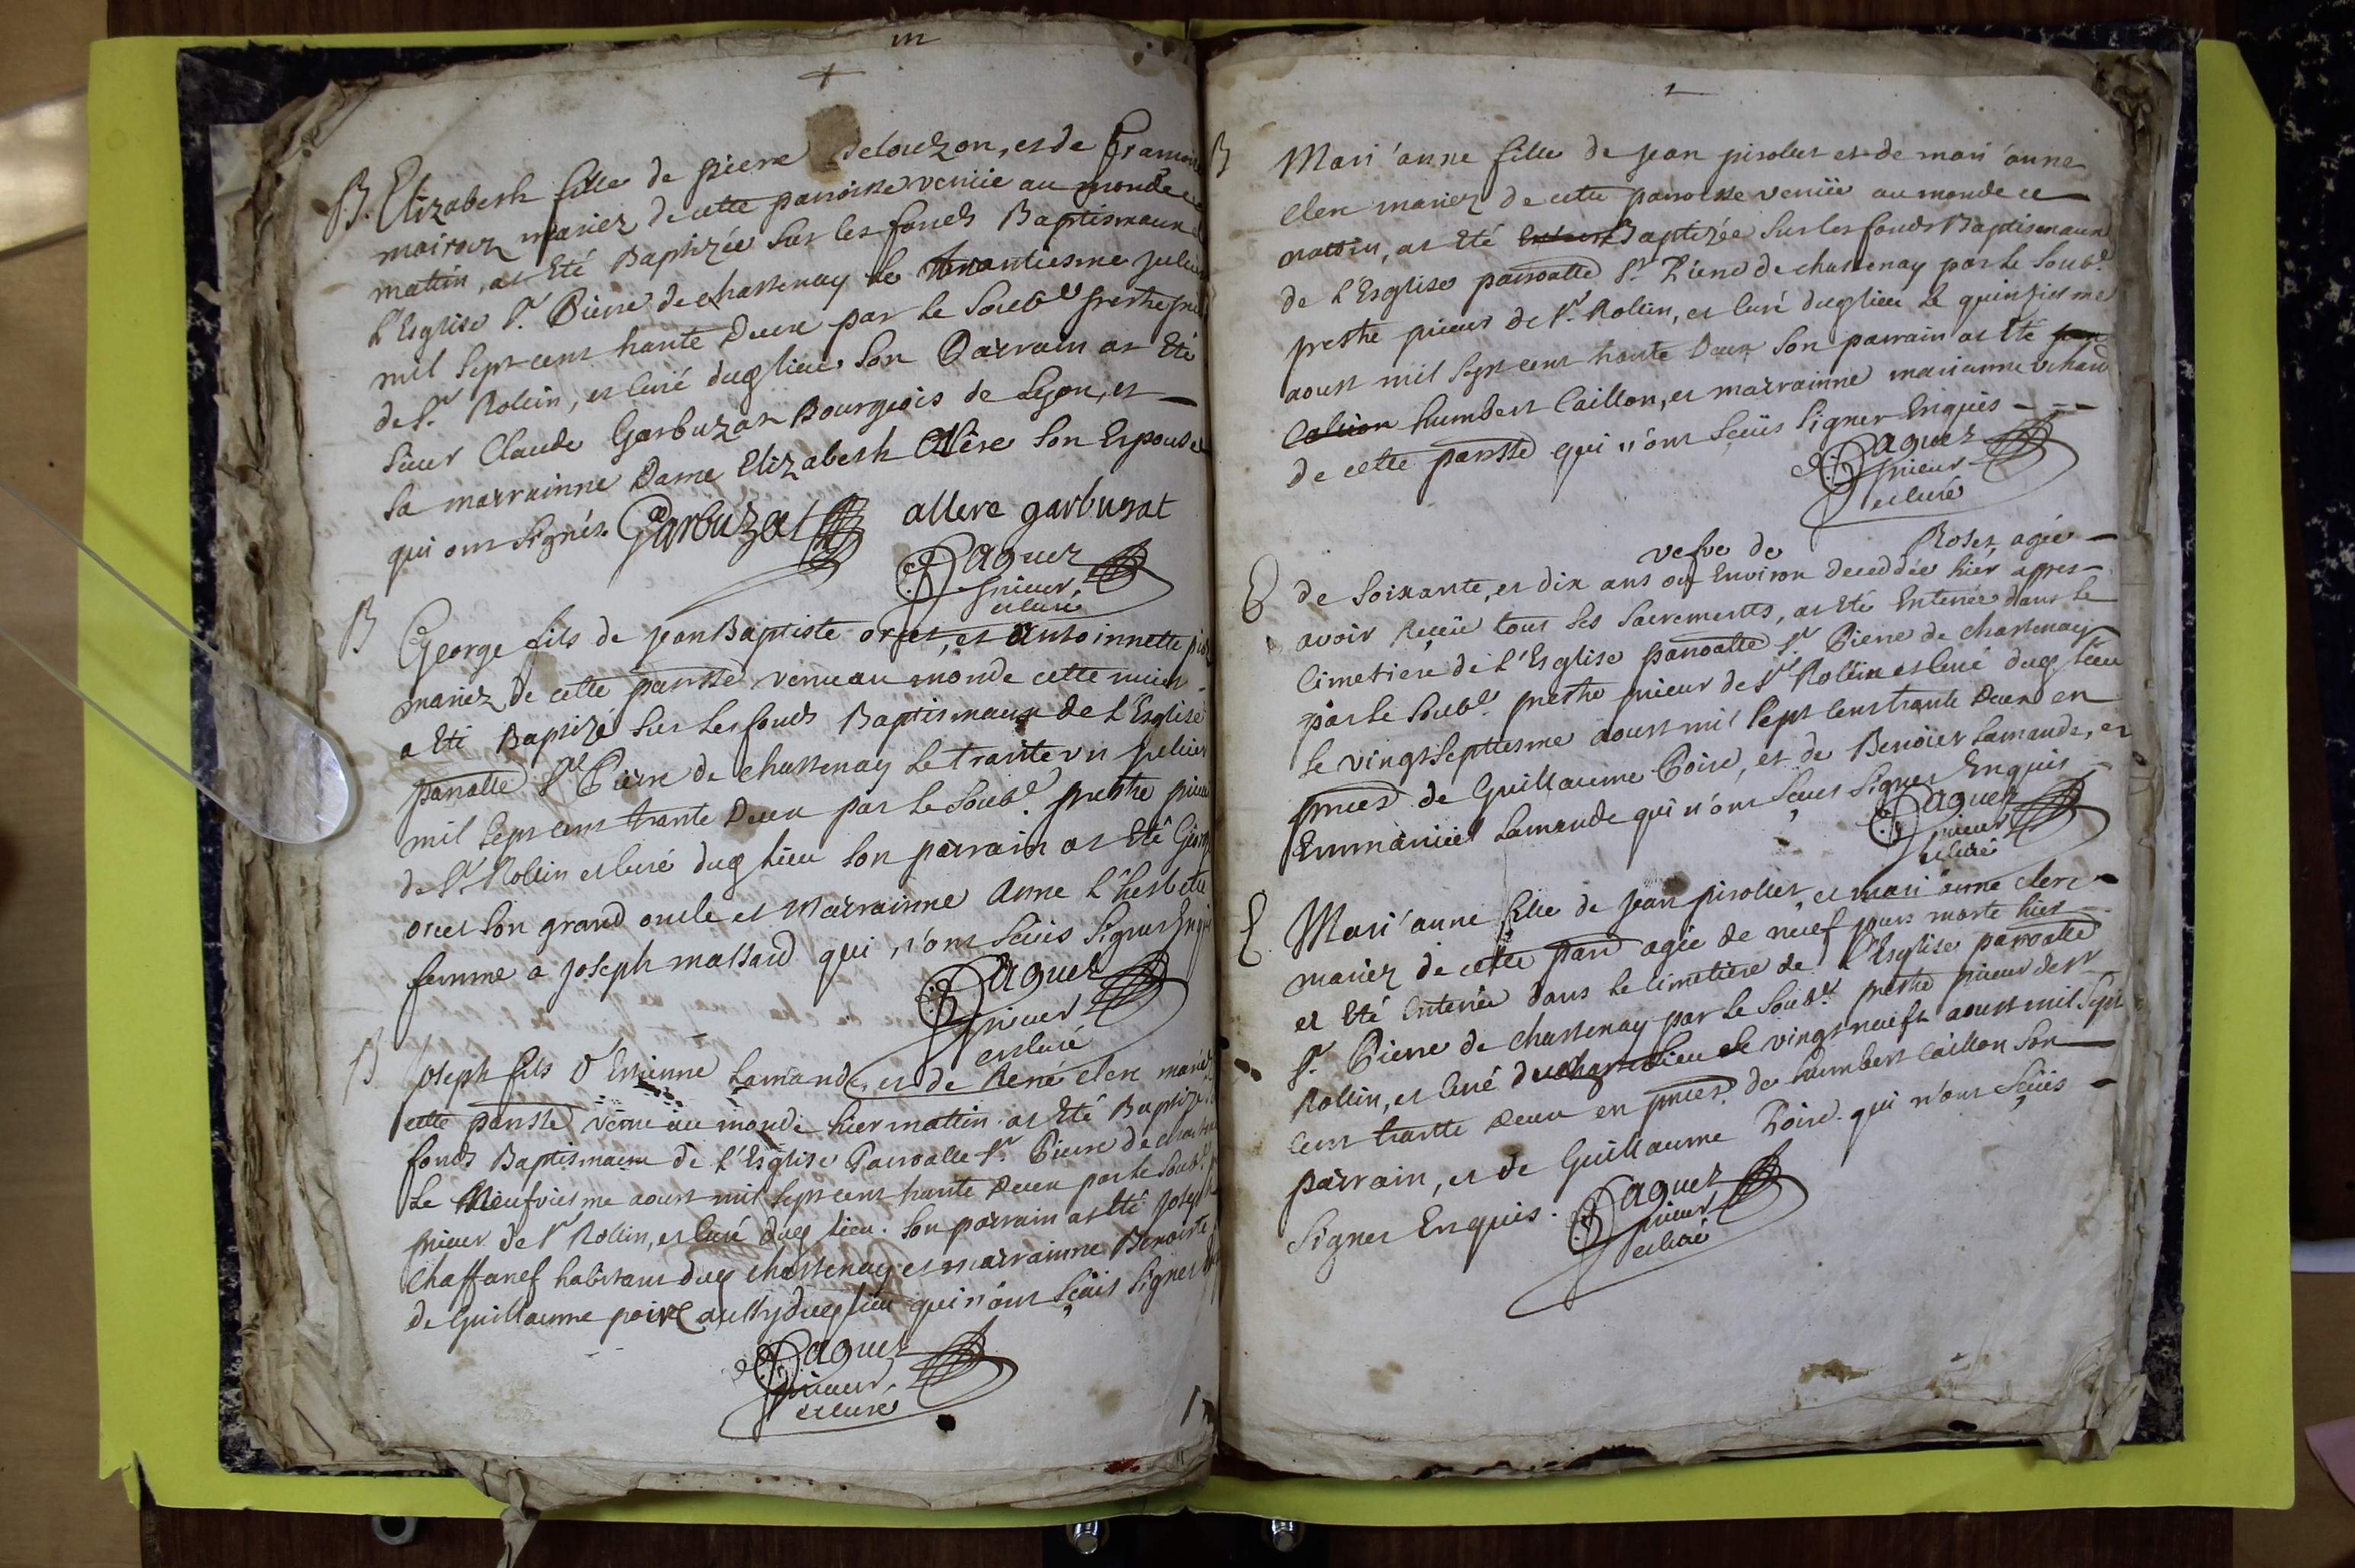 B. Elizabesh fille de piere Delouzon, et de
mariez de cette parroisse venüe au monde ce
mattin, at Eté Baptizée sur les fonds Baptismaux
l'Esglise St. Piere de chassenay le trantiesme
mil sept cent trante deux par le Soubd prestre
de St. Rollin, et Curé dudlieu Son Parrain at Eté
sieur Claude Garbuzat Bourgeois de Lyon, et
sa marrainne Dame Elizabesh Alere Son Espouse
qui ont signés. Garbuzat allere garbuzat
Paquez
prieur
et curé
B George fils de jean Baptiste oriet, et Antoinnette
mariez de cette parrsse venu au monde cette nuict
a Eté Baptizé sur les fonds Baptismaux de l'Esglise
parralle St Piere de chassenay le trante vn
mil sept cent trante Deux par le Soubd. prestre
de St Rollin et curé dudlieu son parrain at Eté
oriet son grand oncle et marrainne Anne
femme a joseph massard qui n'ont sçüis signer
Paquez
prieur
et curé
B Joseph fils d'Estienne Lamande, et de René clere
cette parrsse venu au monde hier mattin at Eté
fonds Baptismaux de l'Esglise Parroalle St. Piere de
Le Neufviesme aoust mil sept cent trante Deux par le Soubd.
prieur de St Rollin, et curé dud lieu. son parrain at Eté
chaffanef habitant dud chassenay et marrainne Benoiste
de Guillaume poire aussy dud lieu qui n'ont sçüis signer
Paquez
prieur
et curé
B Mari'anne fille de jean pisollet et de mari'anne
clere mariez de cette parroisse venüe au monde ce
mattin, at Eté Baptizée sur les fonds Baptismaux
de l'Esglise parroalle St. Piere de chassenay par le Soubd.
prestre prieur de St. Rollin, et Curé dudlieu le quinsiesme
aoust mil sept cent trante Deux Son parrain at Eté
humbert Caillon, et marrainne marianne
de cette parrsse qui n'ont sçüis signer Enquis
Paquez
prieur
et curé
vefve de Roset, agée
E de soixante, et dix ans ou Environ deceddée hier apres
avoir reçeüe tous ses sacrements, at Eté Enterrée dans le
cimetiere de l'Esglise parroalle St. Piere de chassenay
par le Soubd. prestre prieur de St Rollin et curé dud lieu
le vingt septtesme aoust mil sept cent trante Deux en
pnces de Guillaume Poire, et de Benoict Lamande, et
Emmanüel Lamande qui n'ont sçeus signer Enquis
Paquez
prieur
et curé
E. Mari'anne fille de jean pisollet, et mari'anne clere
mariez de cette parr agée de neuf jours morte hier
et Eté Enterrée dans le cimetiere de l'Esglise parroalle
St. Piere de chassenay par le Soubd. prestre prieur de St
Rollin, et curé du lieu le vingt neufe aoust mil sept
cent trante Deux en pnces de humbert Caillon son
parrain, et de Guillaume Poire. qui n'ont sçüis
signer Enquis.
Paquez
prieur
et curé